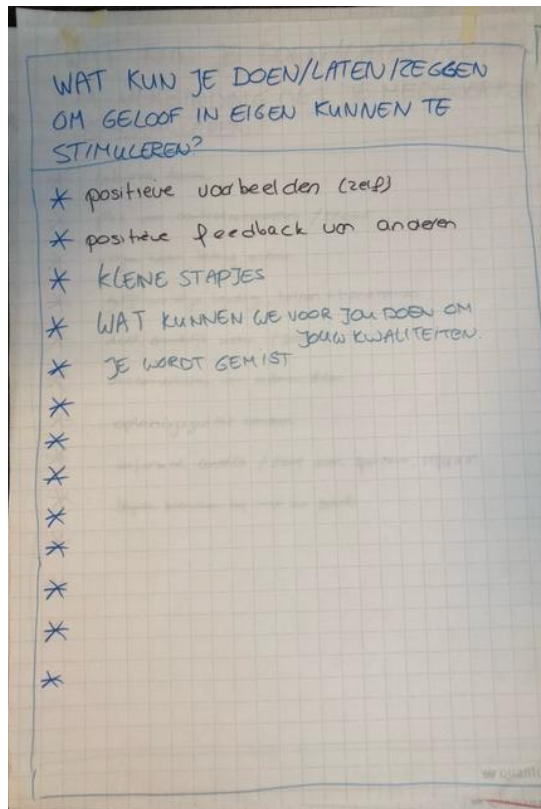 WAT KUN JE DOEN/LATEN/ZEGGEN
OM GELOOF IN EIGEN KUNNEN TE
STIMULEREN?
* positieve voorbeelden (zelf)
* positieve feedback van anderen
* KLEINE STAPJES
* WAT KUNNEN WE VOOR JOU DOEN OM
JOUW KWALITEITEN.
* JE WORDT GEMIST
*
*
*
*
*
*
*
*